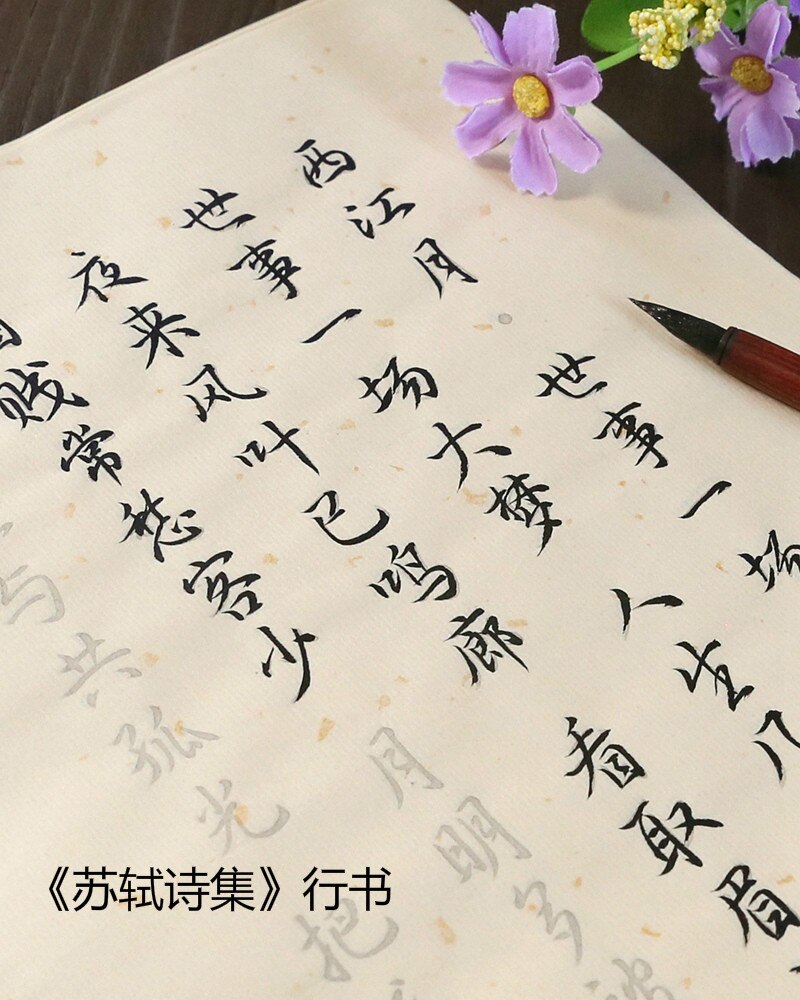 西江月 世事一场
世事一场大梦 人生几
夜来风叶已鸣廊 看取眉
贱常愁客少 月明多
与共孤光 把
《苏轼诗集》行书